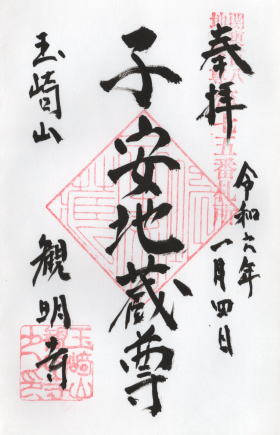 奉拝
令和六年
一月四日
子安地蔵尊
玉崎山
観明寺